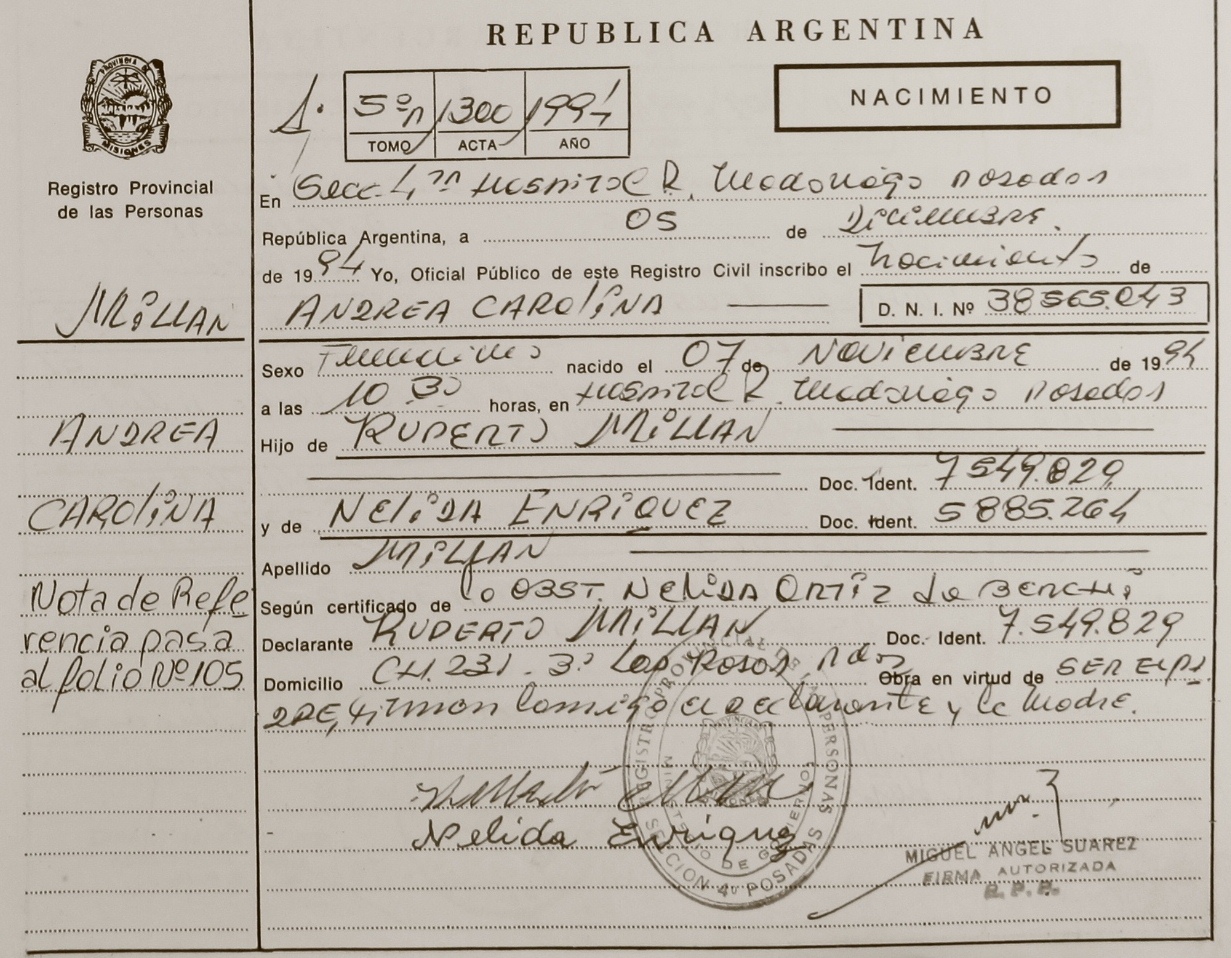 REPUBLICA ARGENTINA
PROVINCIA DE
MISIONES
Registro Provincial
de las Personas
1300 1994
TOMO ACTA AÑO
NACIMIENTO
En Secc. 4ta Hospital R. Madariaga Posadas
República Argentina, a 05 de Diciembre.
de 1994 Yo, Oficial Público de este Registro Civil inscribo el Nacimiento de
MILLAN
ANDREA CAROLINA
D. N. I. Nº 38565.043
Sexo Femenino nacido el 07 de NOVIEMBRE de 1994
a las 10 30 horas, en Hospital R. Madariaga Posadas
ANDREA
Hijo de RUPERTO MILLAN
Doc. Ident. 7549.829
CAROLINA
y de NELIDA ENRIQUEZ Doc. Ident. 5885.264
Apellido MILLAN
Nota de Refe
rencia pasa
al folio Nº 105
Según certificado de la OBST. NELIDA ORTIZ de
Declarante RUPERTO MILLAN Doc. Ident. 7.549.829
Domicilio CH. 231 - 3º Las Rosas Pdas Obra en virtud de SER EL PA
DRE, firman conmigo el declarante y la Madre.
Nelida Enriquez
REGISTRO PROVINCIAL DE LAS PERSONAS
MINISTERIO DE GOBIERNO
SECCION 4º POSADAS
MIGUEL ANGEL SUAREZ
FIRMA AUTORIZADA
R.P.P.